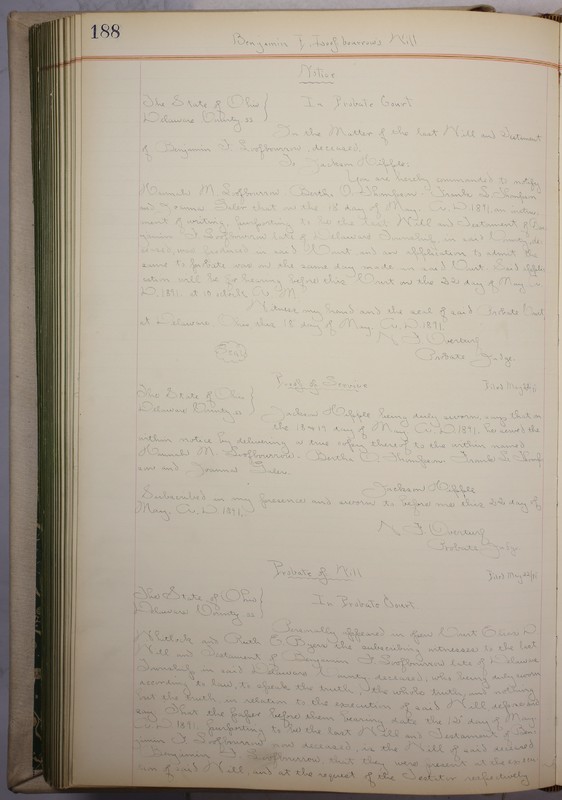 188
Benjamin F. Loofbourrow Will
Notice
The State of Ohio } In Probate Court
Delaware County ss
In the Matter of the last Will and Testament
of Benjamin F. Loofbourrow, deceased.
To Jackson Hipple:
You are hereby commanded to notify
Hannah M. Loofbourrow Bertha O. Thompson Frank L. Thompson
and that on the 18 day of May A.D. 1891, an instru-
ment of writing, purporting to be the Last Will and Testament of Ben-
jamin F. Loofbourrow late of Delaware Township, in said County de-
ceased, was produced in said Court and an application to admit the
same to probate was on the same day made in said Court. Said applic-
ation will be for hearing before this Court on the 22d day of May A.
D. 1891, at 10 o'clock A.M.
Witness my hand and the seal of said Probate Court
at Delaware, Ohio this 18 day of May, A.D. 1891
Seal
N F Overturf
Probate Judge
Proof of Service Filed May
The State of Ohio }
Delaware County ss Jackson Hipple being duly sworn, says that on
the 18 & 19 day of May A.D. 1891, he served the
within notice by delivering a true copy thereof to the within named
Hannah M. Loofbourrow. Bertha O. Thompson Frank L. Thomp-
son and
Jackson Hipple
Subscribed in my presence and sworn to before me this 22d day of
May, A.D. 1891.
N F Overturf
Probate Judge
Probate of Will Filed May
The State of Ohio }
Delaware County ss In Probate Court
Personally appeared in open Court
and Ruth E Byers the subscribing witnesses to the last
Will and Testament of Benjamin F. Loofbourrow late of Delaware
Township in said Delaware County deceased, who being duly sworn
according to law, to speak the truth, the whole truth, and nothing
but the truth, in relation to the execution of said Will depose and
say: That the paper before them bearing date the day of May
A.D. 1891, purporting to be the last Will and Testament of Ben-
jamin F. Loofbourrow now deceased, is the Will of said deceased
Benjamin F. Loofbourrow, that they were present at the execu-
tion of said Will, and at the request of the Testator respectively